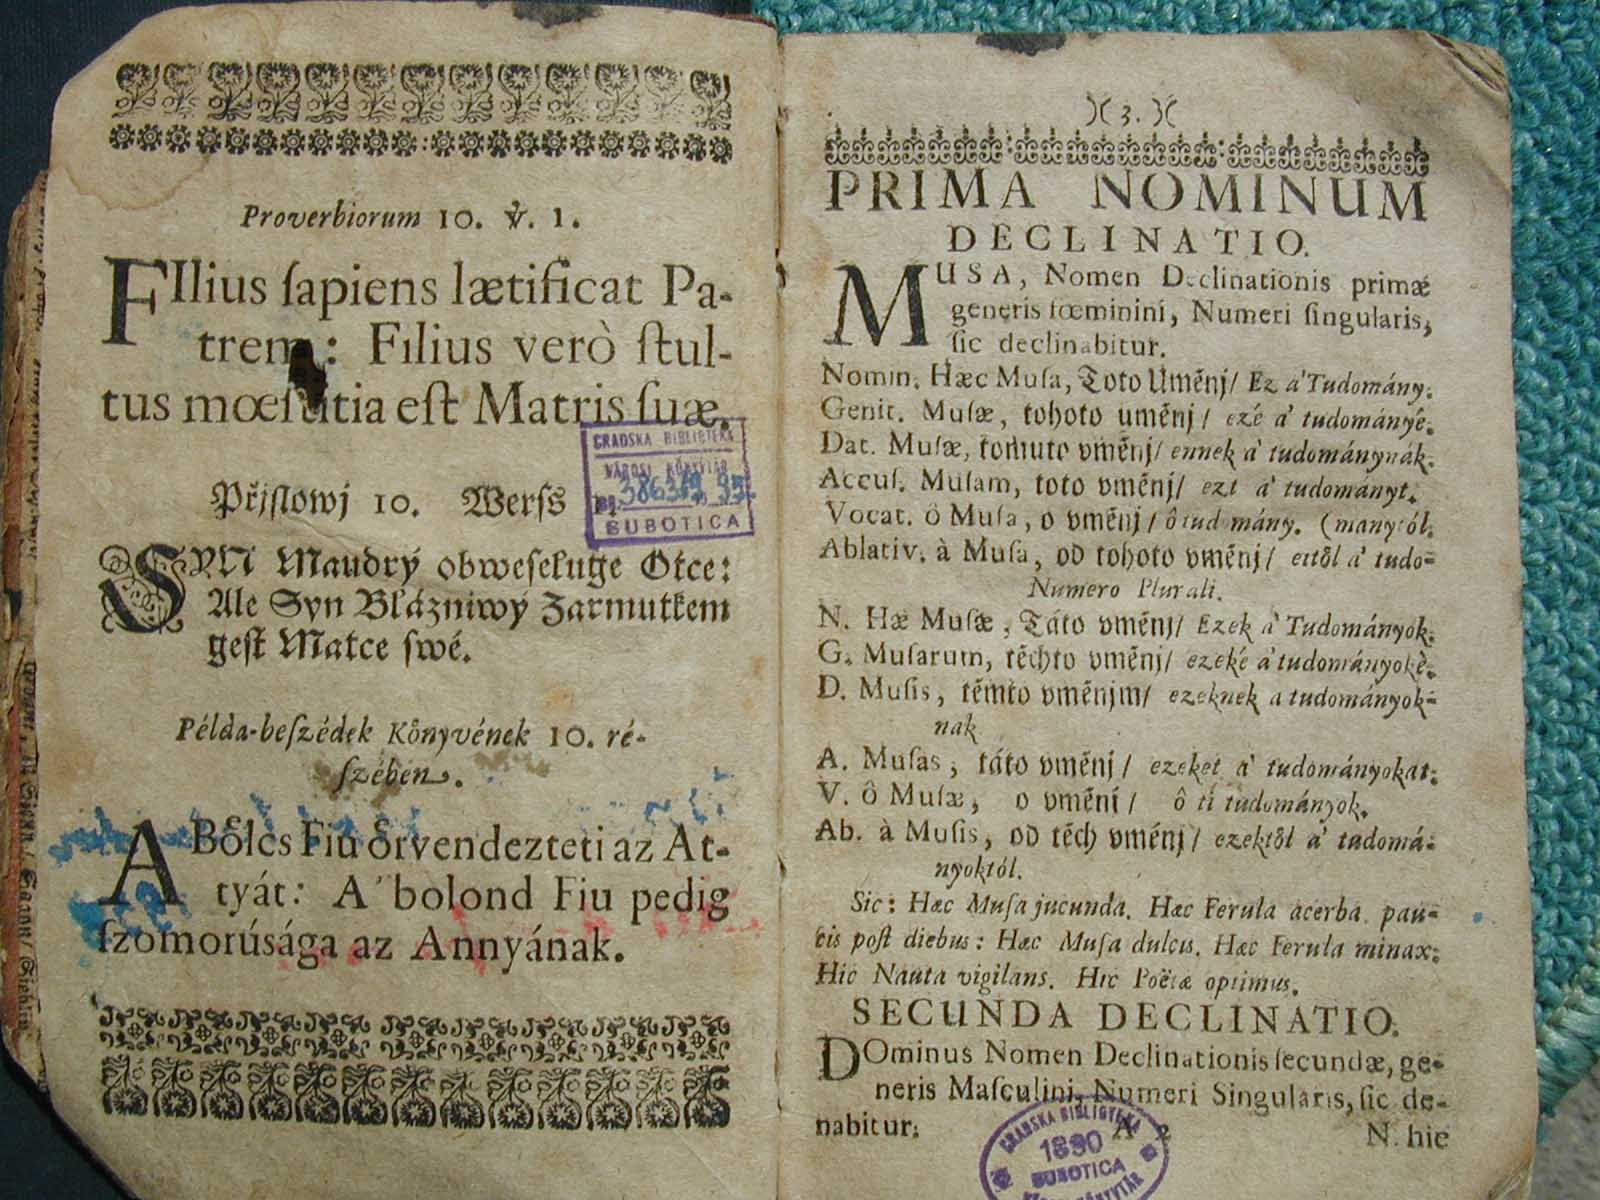 Proverbiorum 10. ℣. 1.
FIlius ſapiens lætificat Pa-
trem: Filius verò ſtul-
tus mœſtitia eſt Matris ſuæ.
Přjſlowj 10. Werſs
SYN Maudrý obweſelugе Otce:
Ale Syn Bláznіwý Zarmutkem
geſt Matce ſwé.
Példa-beſzédek Kôͤnyvének 10. ré-
ſzében.
A Boͤlcs Fiu oͤrvendezteti az At-
tyát: A' bolond Fiu pedig
ſzomorúsága az Annyának.
GRADSKA BIBLIOTEKA
VÁROSI KÖNYVTÁR
SUBOTICA
)( 3. )(
PRIMA NOMINUM
DECLINATIO.
MUSA, Nomen Declinationis primæ
generis fœminini, Numeri ſingularis,
ſic declinabitur.
Nomin. Hæc Muſa, Toto Uměnj/ Ez a' Tudomány.
Genit. Muſæ, tohoto uměnj/ ezé a' tudományé.
Dat. Muſæ, tomuto vměnj/ ennek a' tudománynak.
Accuſ. Muſam, toto vměnj/ ezt a' tudományt.
Vocat. ô Muſa, o vměnj/ ô tudomány. (manytól.
Ablativ. à Muſa, od tohoto vměnj/ ettoͤl a' tudo-
Numero Plurali.
N. Hæ Muſæ, Táto vměnj/ Ezek a' Tudományok.
G. Muſarum, těchto vměnj/ ezeké a' tudományoké.
D. Muſis, těmto vměnjm/ ezeknek a tudományok-
nak
A. Muſas, táto vměnj/ ezeket a' tudományokat.
V. ô Muſæ, o vměnj/ ô ti tudományok.
Ab. à Muſis, od těch vměnj/ ezektoͤl a' tudomá-
nyoktól.
Sic: Hæc Muſa jucunda. Hæc Ferula acerba pau-
cis poſt diebus: Hæc Muſa dulcis. Hæc Ferula minax:
Hic Nauta vigilans. Hic Poëta optimus.
SECUNDA DECLINATIO.
DOminus Nomen Declinationis ſecundæ, ge-
neris Maſculini, Numeri Singularis, ſic de-
nabitur.
A 2
N. hic
GRADSKA BIBLIOTEKA
1890
SUBOTICA
VÁROSI KÖNYVTÁR